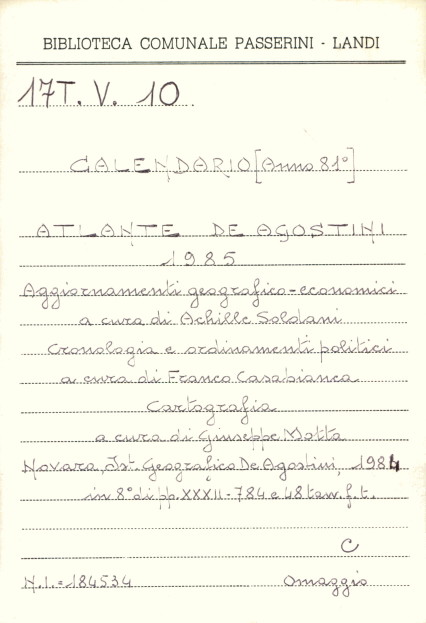 BIBLIOTECA COMUNALE PASSERINI - LANDI
17T. V. 10
CALENDARIO [Anno 81°]
ATLANTE DE AGOSTINI
1985
Aggiornamenti geografico-economici
a cura di Achille Soldani
Cronologia e ordinamenti politici
a cura di Franco Casabianca
Cartografia
a cura di Giuseppe Motta
Novara, Ist. Geografico De Agostini, 1984
in 8° di pp. XXXII-784 e 48 tav. f.t.
C
N.I.=184534 Omaggio